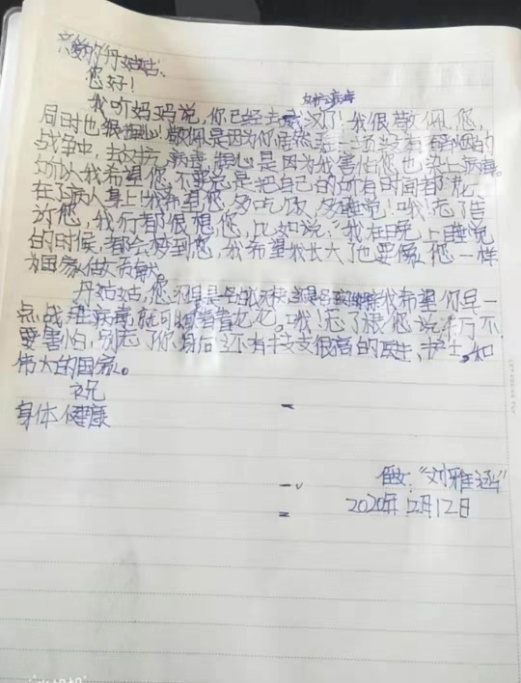 亲爱的丹姑姑、
您好!
我听妈妈说,你已经去武汉了!我很敬佩您,
同时也很担心!敬佩是因为你居然在一场没有硝烟的
战争中,去对抗病毒,担心是因为我害怕您也染上病毒。
所以我希望您不要总是把自己的所有时间都花
在了病人身上!我希望您,多吃饭,多睡觉!哦!忘了告
诉您,我们都很想您,比如说:我在晚上睡觉
的时候,都会梦到您,我希望我长大了也要像您一样
为国家做贡献。
丹姑姑,您不但是我希望你早一
点战胜病毒就可以。哦!忘了跟您说千万不
要害怕,别忘了你身后还有千千万万很厉害的医生、护士,和
伟大的国家。
祝
身体健康
侄女:“刘雅涵”
2020年2月12日